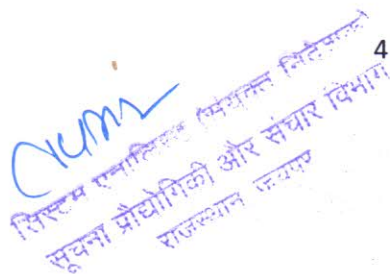 4
सिस्टम एनालिस्ट (संयुक्त निदेशक)
सूचना प्रौद्योगिकी और संचार विभाग
राजस्थान जयपुर